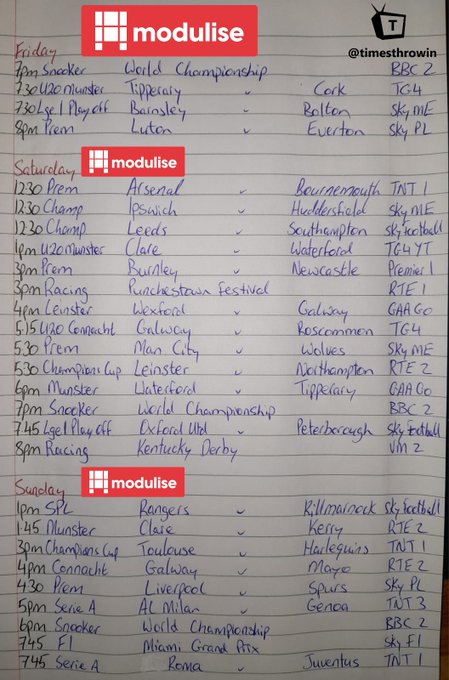 modulise
T
@timesthrowin
Friday
7pm Snooker World Championship BBC 2
7.30 U20 Munster Tipperary v Cork TG4
7.30 Lge 1 Play off Barnsley v Bolton Sky ME
8pm Prem Luton v Everton Sky PL
Saturday modulise
12.30 Prem Arsenal v Bournemouth TNT 1
12.30 Champ Ipswich v Huddersfield Sky ME
12.30 Champ Leeds v Southampton Sky football
1pm U20 Munster Clare v Waterford TG4 YT
3pm Prem Burnley v Newcastle Premier 1
3pm Racing Punchestown Festival RTE 1
4pm Leinster Wexford v Galway GAA GO
5.15 U20 Connacht Galway v Roscommon TG4
5.30 Prem Man City v Wolves Sky ME
5.30 Champions Cup Leinster v Northampton RTE 2
6pm Munster Waterford v Tipperary GAA GO
7pm Snooker World Championship BBC 2
7.45 Lge 1 Play off Oxford Utd v Peterborough Sky football
8pm Racing Kentucky Derby VM 2
Sunday modulise
1pm SPL Rangers v Killmarnock Sky football
1.45 Munster Clare v Kerry RTE 2
3pm Champions Cup Toulouse v Harlequins TNT 1
4pm Connacht Galway v Mayo RTE 2
4.30 Prem Liverpool v Spurs Sky PL
5pm Serie A AC Milan v Genoa TNT 3
6pm Snooker World Championship BBC 2
7.45 F1 Miami Grand Prix Sky F1
7.45 Serie A Roma v Juventus TNT 1